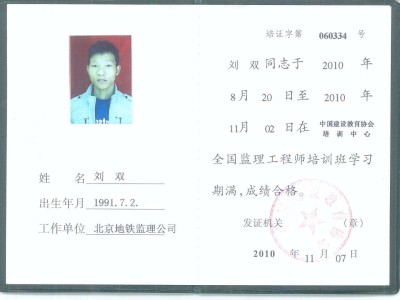 姓名 刘 双
出生年月 1991.7.2.
工作单位 北京地铁监理公司
培证字第 060334 号
刘 双 同志于 2010 年
8 月 20 日至 2010 年
11月 02 日在 中国建设教育协会
培训中心
全国监理工程师培训班学习
期满,成绩合格。
发证机关 (章)
2010 年 11 月 07 日